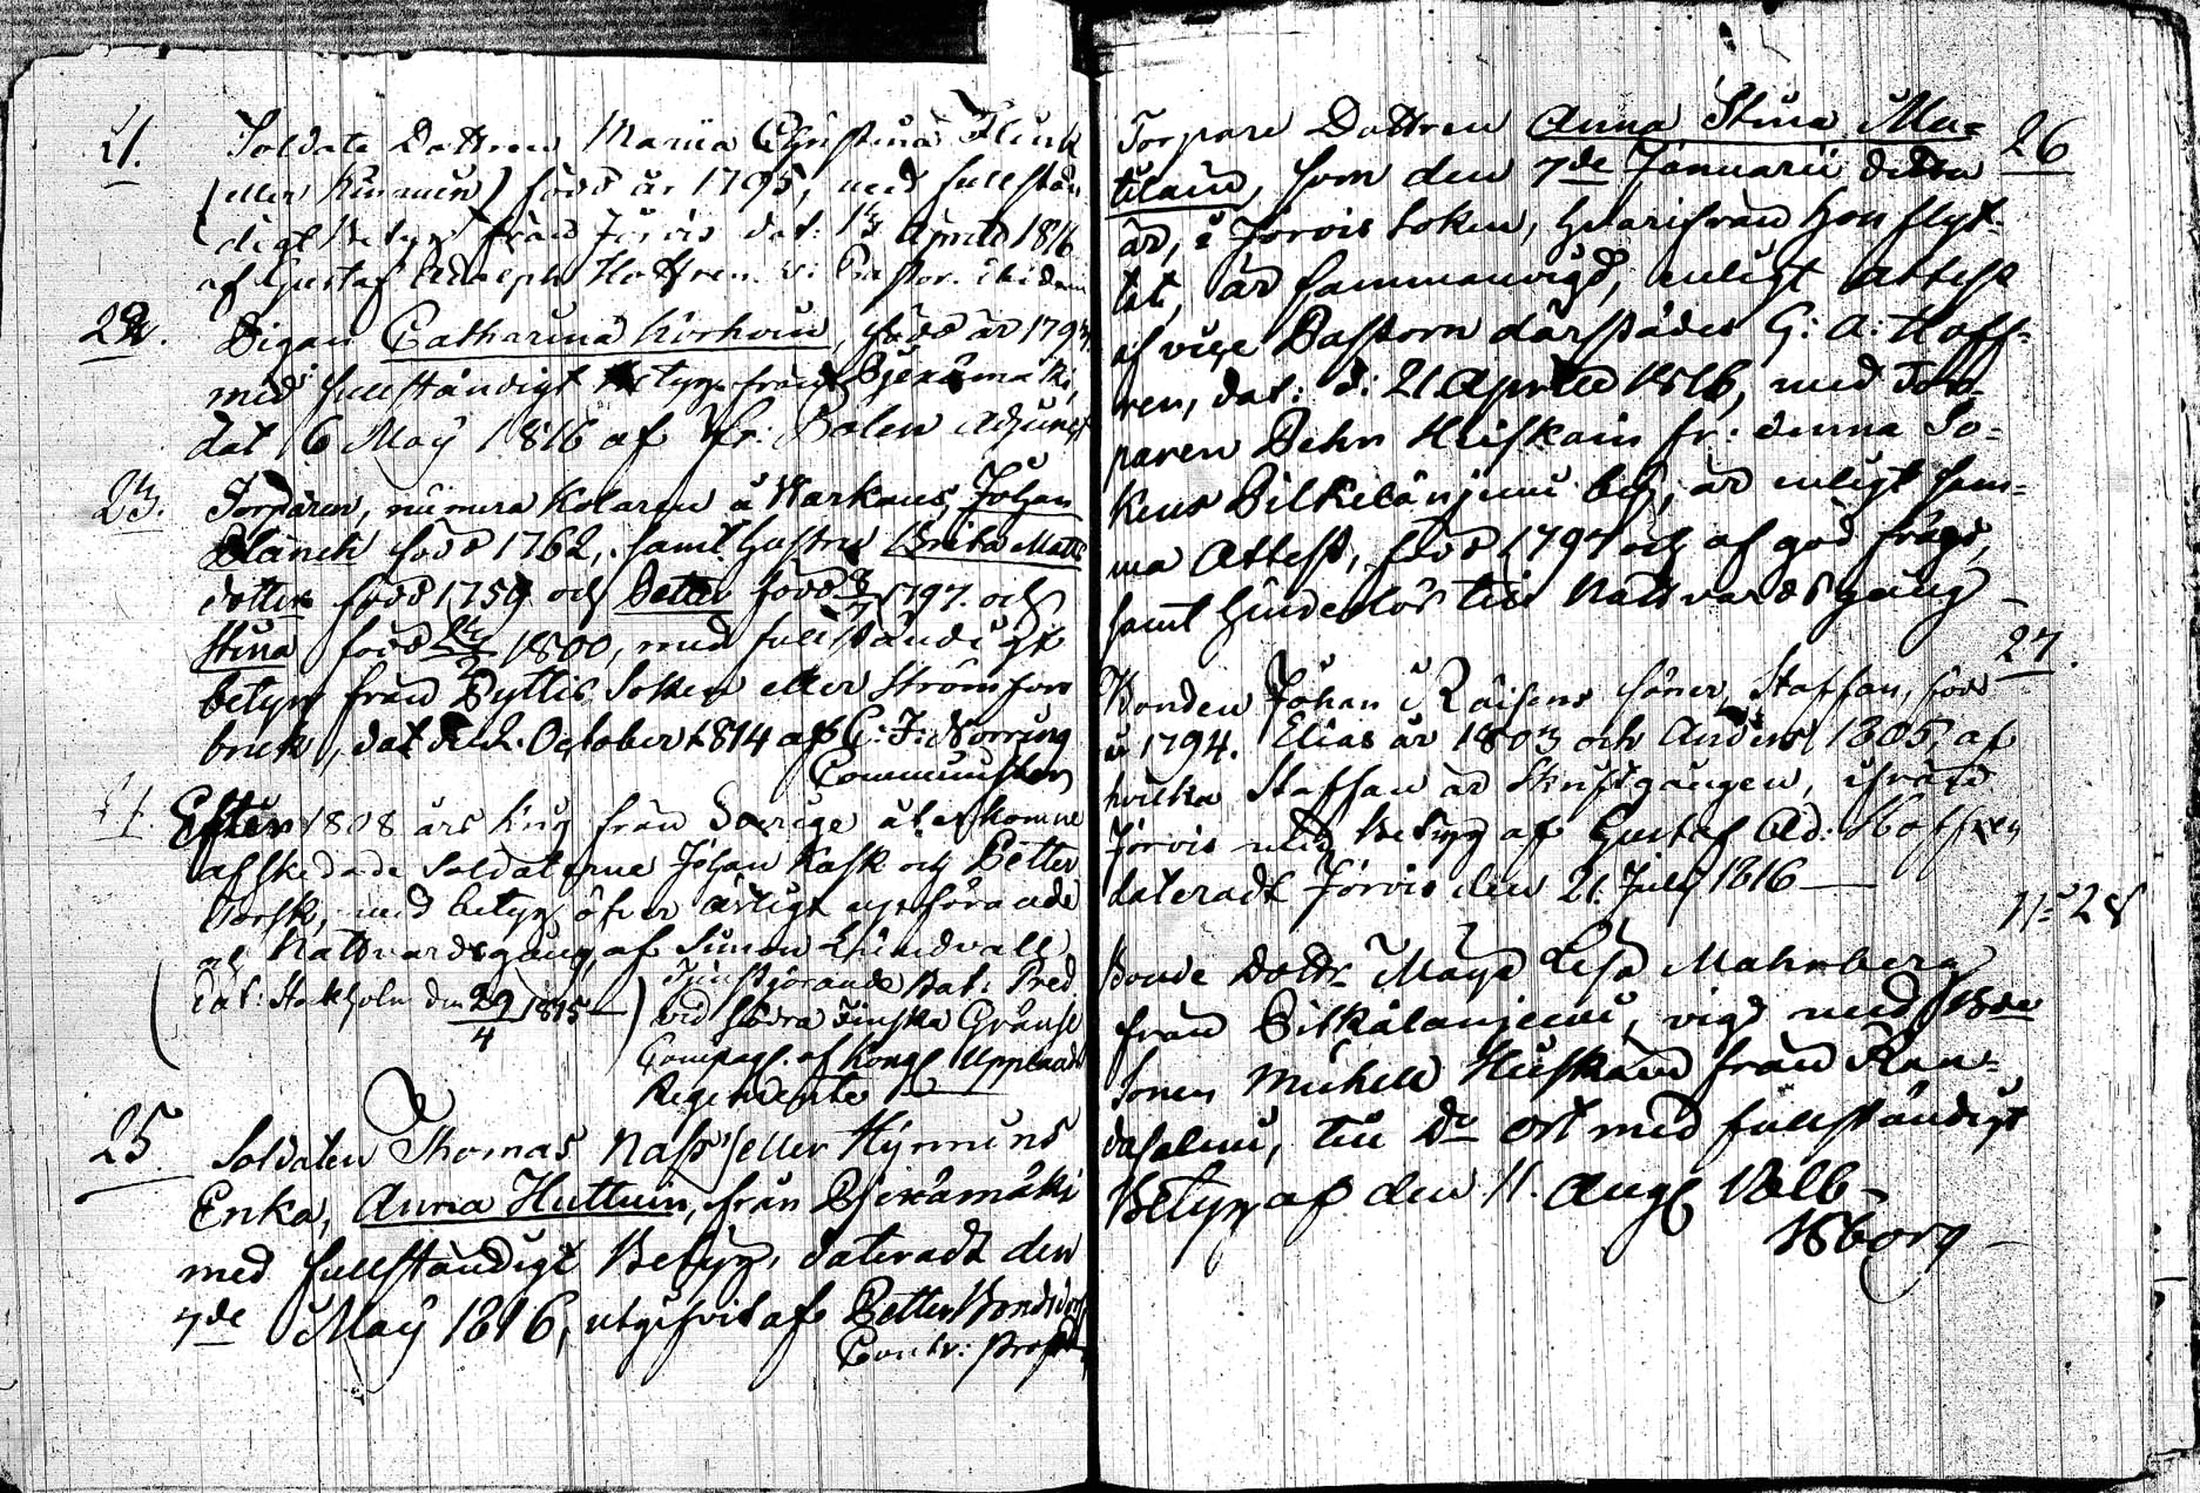 21.
Soldats Dottren Maria Christina Flink
(eller Kinnuin) född år 1795, med fullstän
digt Betyg från Jorois dat: Aprilis 1816
af Gustaf Adolph Hoffren. v: Pastor. ibidem
22.
Pigan Catharina Korhoin, född år 1794
med fullständigt Betyg från Pjexämäki,
dat 6 May 1816 af Fr: Polen Adjunct
23.
Torparen, numera Kolaren å Warkaus, Johan
Planck född 1762, samt hustru Brita Matts
dotter född 1759 och Petter född 1797. och
Stina född 1800, med fullständigt
betyg från Pyttis Soken eller Strömfors
bruk, dat October 1814 af C: J: Norring
Comminister
Efter 1808 års krig från Sverige återkomne
afskedade Soldaterne Johan Rask och Petter
Torsk, med betyg öfver ärligt uppförande
och Nattvardsgång, af Simon Lindvall
(dat: Stockholm den 29/4 1815 -) Tjenstgörande Bat: Pred
vid Södra Finska Gränse
Compagn. af Kongl Upplands
Regemente
25.
Soldaten Thomas Nass eller Hynnins
Enka, Anna Huttuin, från Pjexämäki
med fullständigt Betyg, dateradt den
7de May 1816, utgifvit af Petter Bonsdorff
Contr: Prost
26
Torpare Dottren Anna Stina Ma=
tilain, som den 7de Januarii detta
år, i Jorois Soken, hvarifrån hon flyt=
tat, är sammanvigd, enligt attest
af vice Pastorn därstädes G: A: Hoff=
ren, dat: d: 21 Aprill 1816, med Tor=
paren Pehr Heiskain fr: denna So=
kens Pilkelänjemi by, är enligt sam=
ma Attest, född 1797 och af god frägd,
samt hinderlös till Nattvardsgång -
27.
Bonden Johan Räisens söner, Staffan, född
å 1794. Elias år 1803 och Anders 1805, af
hvilka Staffan är Skriftgången, ifrån
Jorois med Betyg af Gustaf Ad: Hoffren
dateradt Jorois den 21. July 1816 —
No 28
Bonde Dottr Maja Lisa Malmberg
från Pilkälänjemi, vigd med Bonde
Sonen Michell Heiskain från Ran=
dasalmi, till Do ort med fullständigt
Betyg af den 11. Aug 1816 -
Wiborg -